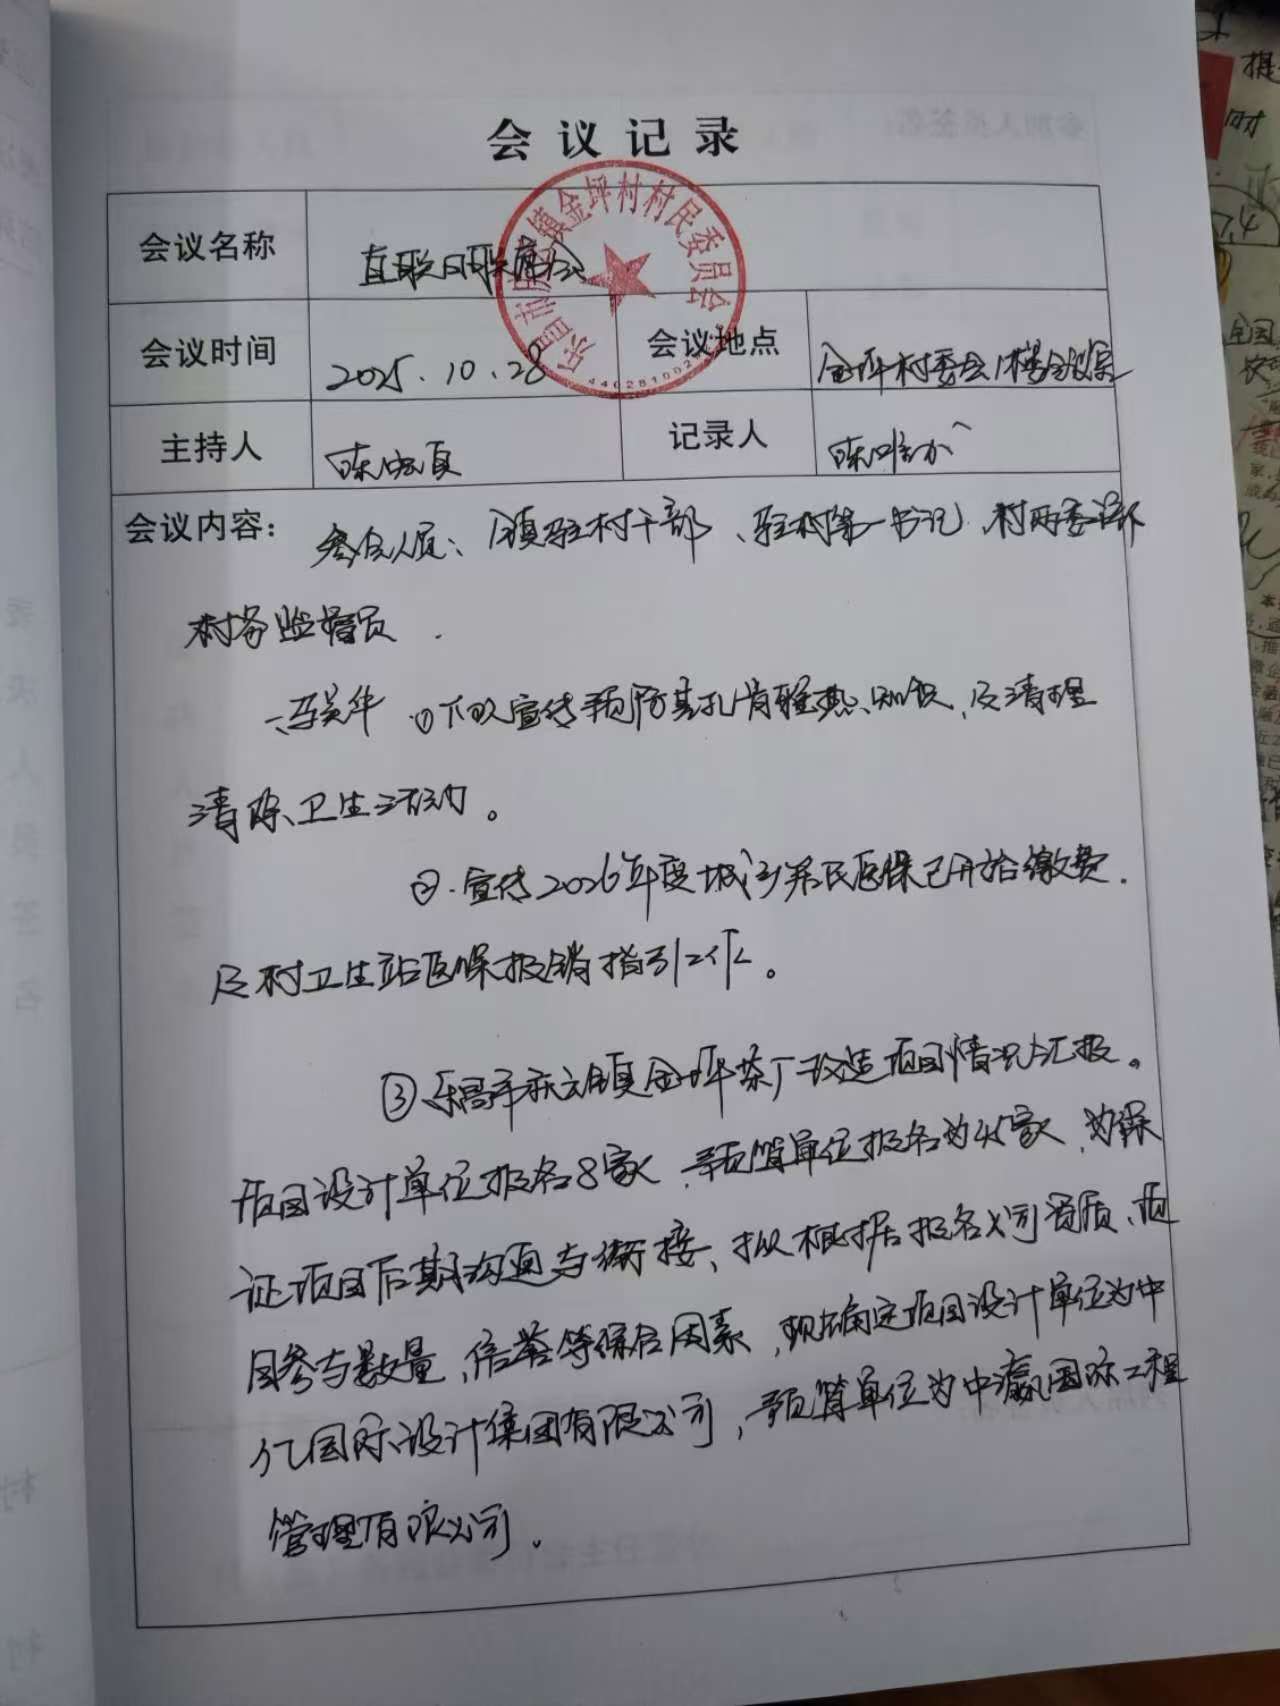 会议记录
会议名称 直联日联席会
乐昌市庆云镇金坪村村民委员会
会议时间 2025.10.28 会议地点 金坪村委会1楼会议室
主持人 记录人 陈
会议内容: 参会人员：镇驻村干部、驻村第一书记、村两委干部
村务监督员.
一、 ①下队宣传预防基孔肯雅热知识,及清理
清除卫生活动。
②.宣传2026年度城乡居民医保已开始缴费.
及村卫生站医保报销指引工作。
③乐昌市庆云镇金坪茶厂改造项目情况汇报。
项目设计单位报名8家,预算单位报名为45家,为保
证项目后期沟通与衔接、拟根据报名公司资质、项
目参与数量,信誉等综合因素,现确定项目设计单位为中
亿国际设计集团有限公司,预算单位为中瀛国际工程
管理有限公司.